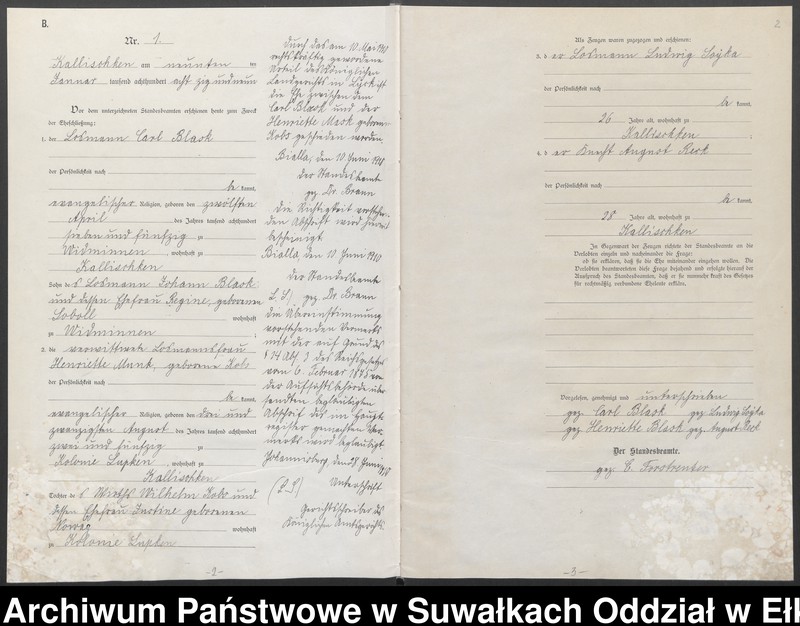 B.
Nr. 1.
Kallischken am neunten ten
Januar tausend achthundert acht zig und neun
Vor dem unterzeichneten Standesbeamten erschienen heute zum Zweck
der Eheschließung:
1. der Losmann Carl Black
der Persönlichkeit nach
be kannt,
evangelischer Religion, geboren den zwölften
April des Jahres tausend achthundert
sieben und fünfzig zu
Widminnen, wohnhaft zu
Kallischken
Sohn des Losmann Johann Black
und dessen Ehefrau Regine, geborenen
Soboll wohnhaft
zu Widminnen;
2. die verwittwete Losmannsfrau
Henriette Munk, geborene Kobs
der Persönlichkeit nach
be kannt,
evangelischer Religion, geboren den drei und
zwanzigsten August des Jahres tausend achthundert
zwei und fünfzig zu
Kolonie Lupken, wohnhaft zu
Kallischken
Tochter des Wirths Wilhelm Kobs und
dessen Ehefrau Justine geborenen
wohnhaft
zu Kolonie Lupken
-2-
Durch das am 10. Mai 1910
rechtskräftig gewordene
Urteil des Königlichen
Landgerichts in Lyck ist
die Ehe zwischen dem
Carl Black und der
Henriette geborene
Kobs geschieden worden.
Bialla, den 10. Juni 1910
Der Standesbeamte
gez. Dr. Brann
Die Richtigkeit vorstehen-
den Abschrift wird hiermit
bescheinigt.
Bialla, den 10 Juni 1910
Der Standesbeamte
(L. S.) gez. Dr. Brann
Die Übereinstimmung
vorstehenden Vermerks
mit der auf Grund des
§ 14 Abs. 3 des Reichsgesetzes
vom 6. Februar 1875 von
der Aufsichtsbehörde über
sendten beglaubigten
Abschrift des im Haupt
register gemachten Ver
merks wird beglaubigt
Johannisburg, den 28 Juni 1910
(L. S.) Unterschrift
Gerichtsschreiber des
Königlichen Amtsgerichts.
2
Als Zeugen waren zugezogen und erschienen:
3. der Losmann Ludwig Soyka
der Persönlichkeit nach
be kannt,
26 Jahre alt, wohnhaft zu
Kallischken;
4. der Knecht August Reck
der Persönlichkeit nach
be kannt,
28 Jahre alt, wohnhaft zu
Kallischken
In Gegenwart der Zeugen richtete der Standesbeamte an die
Verlobten einzeln und nacheinander die Frage:
ob sie erklären, daß sie die Ehe miteinander eingehen wollen. Die
Verlobten beantworteten diese Frage bejahend und erfolgte hierauf der
Ausspruch des Standesbeamten, daß er sie nunmehr kraft des Gesetzes
für rechtmäßig verbundene Eheleute erkläre.
Vorgelesen, genehmigt und unterschrieben
gez. Carl Black gez. Ludwig Soyka
gez. Henriette Black gez. August Reck
Der Standesbeamte.
gez. E. Forstreuter
-3-
Archiwum Państwowe w Suwałkach Oddział w Ełk